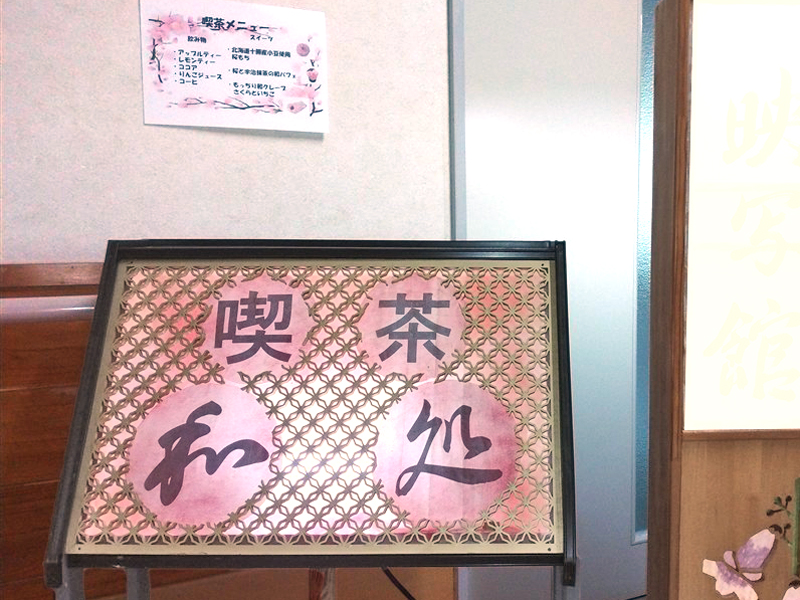 喫茶メニュー
飲み物
・アップルティー
・レモンティー
・ココア
・りんごジュース
・コーヒ
スイーツ
・北海道十勝産小豆使用
桜もち
・桜と宇治抹茶の和パフェ
・もっちり和クレープ
さくらといちご
喫茶
和処
映写館